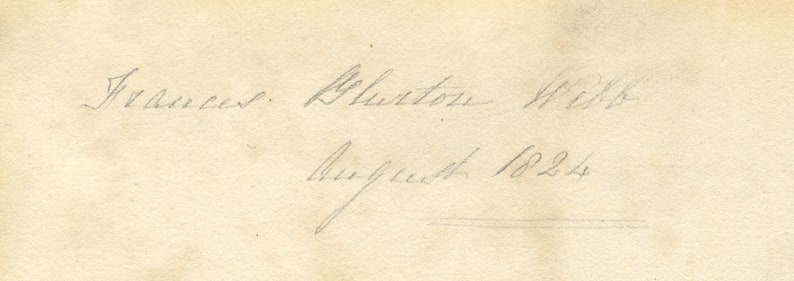 Frances. Blurton Webb
August 1824